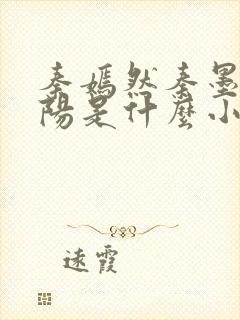 秦嫣然秦墨
陽是什麼小
遠霞